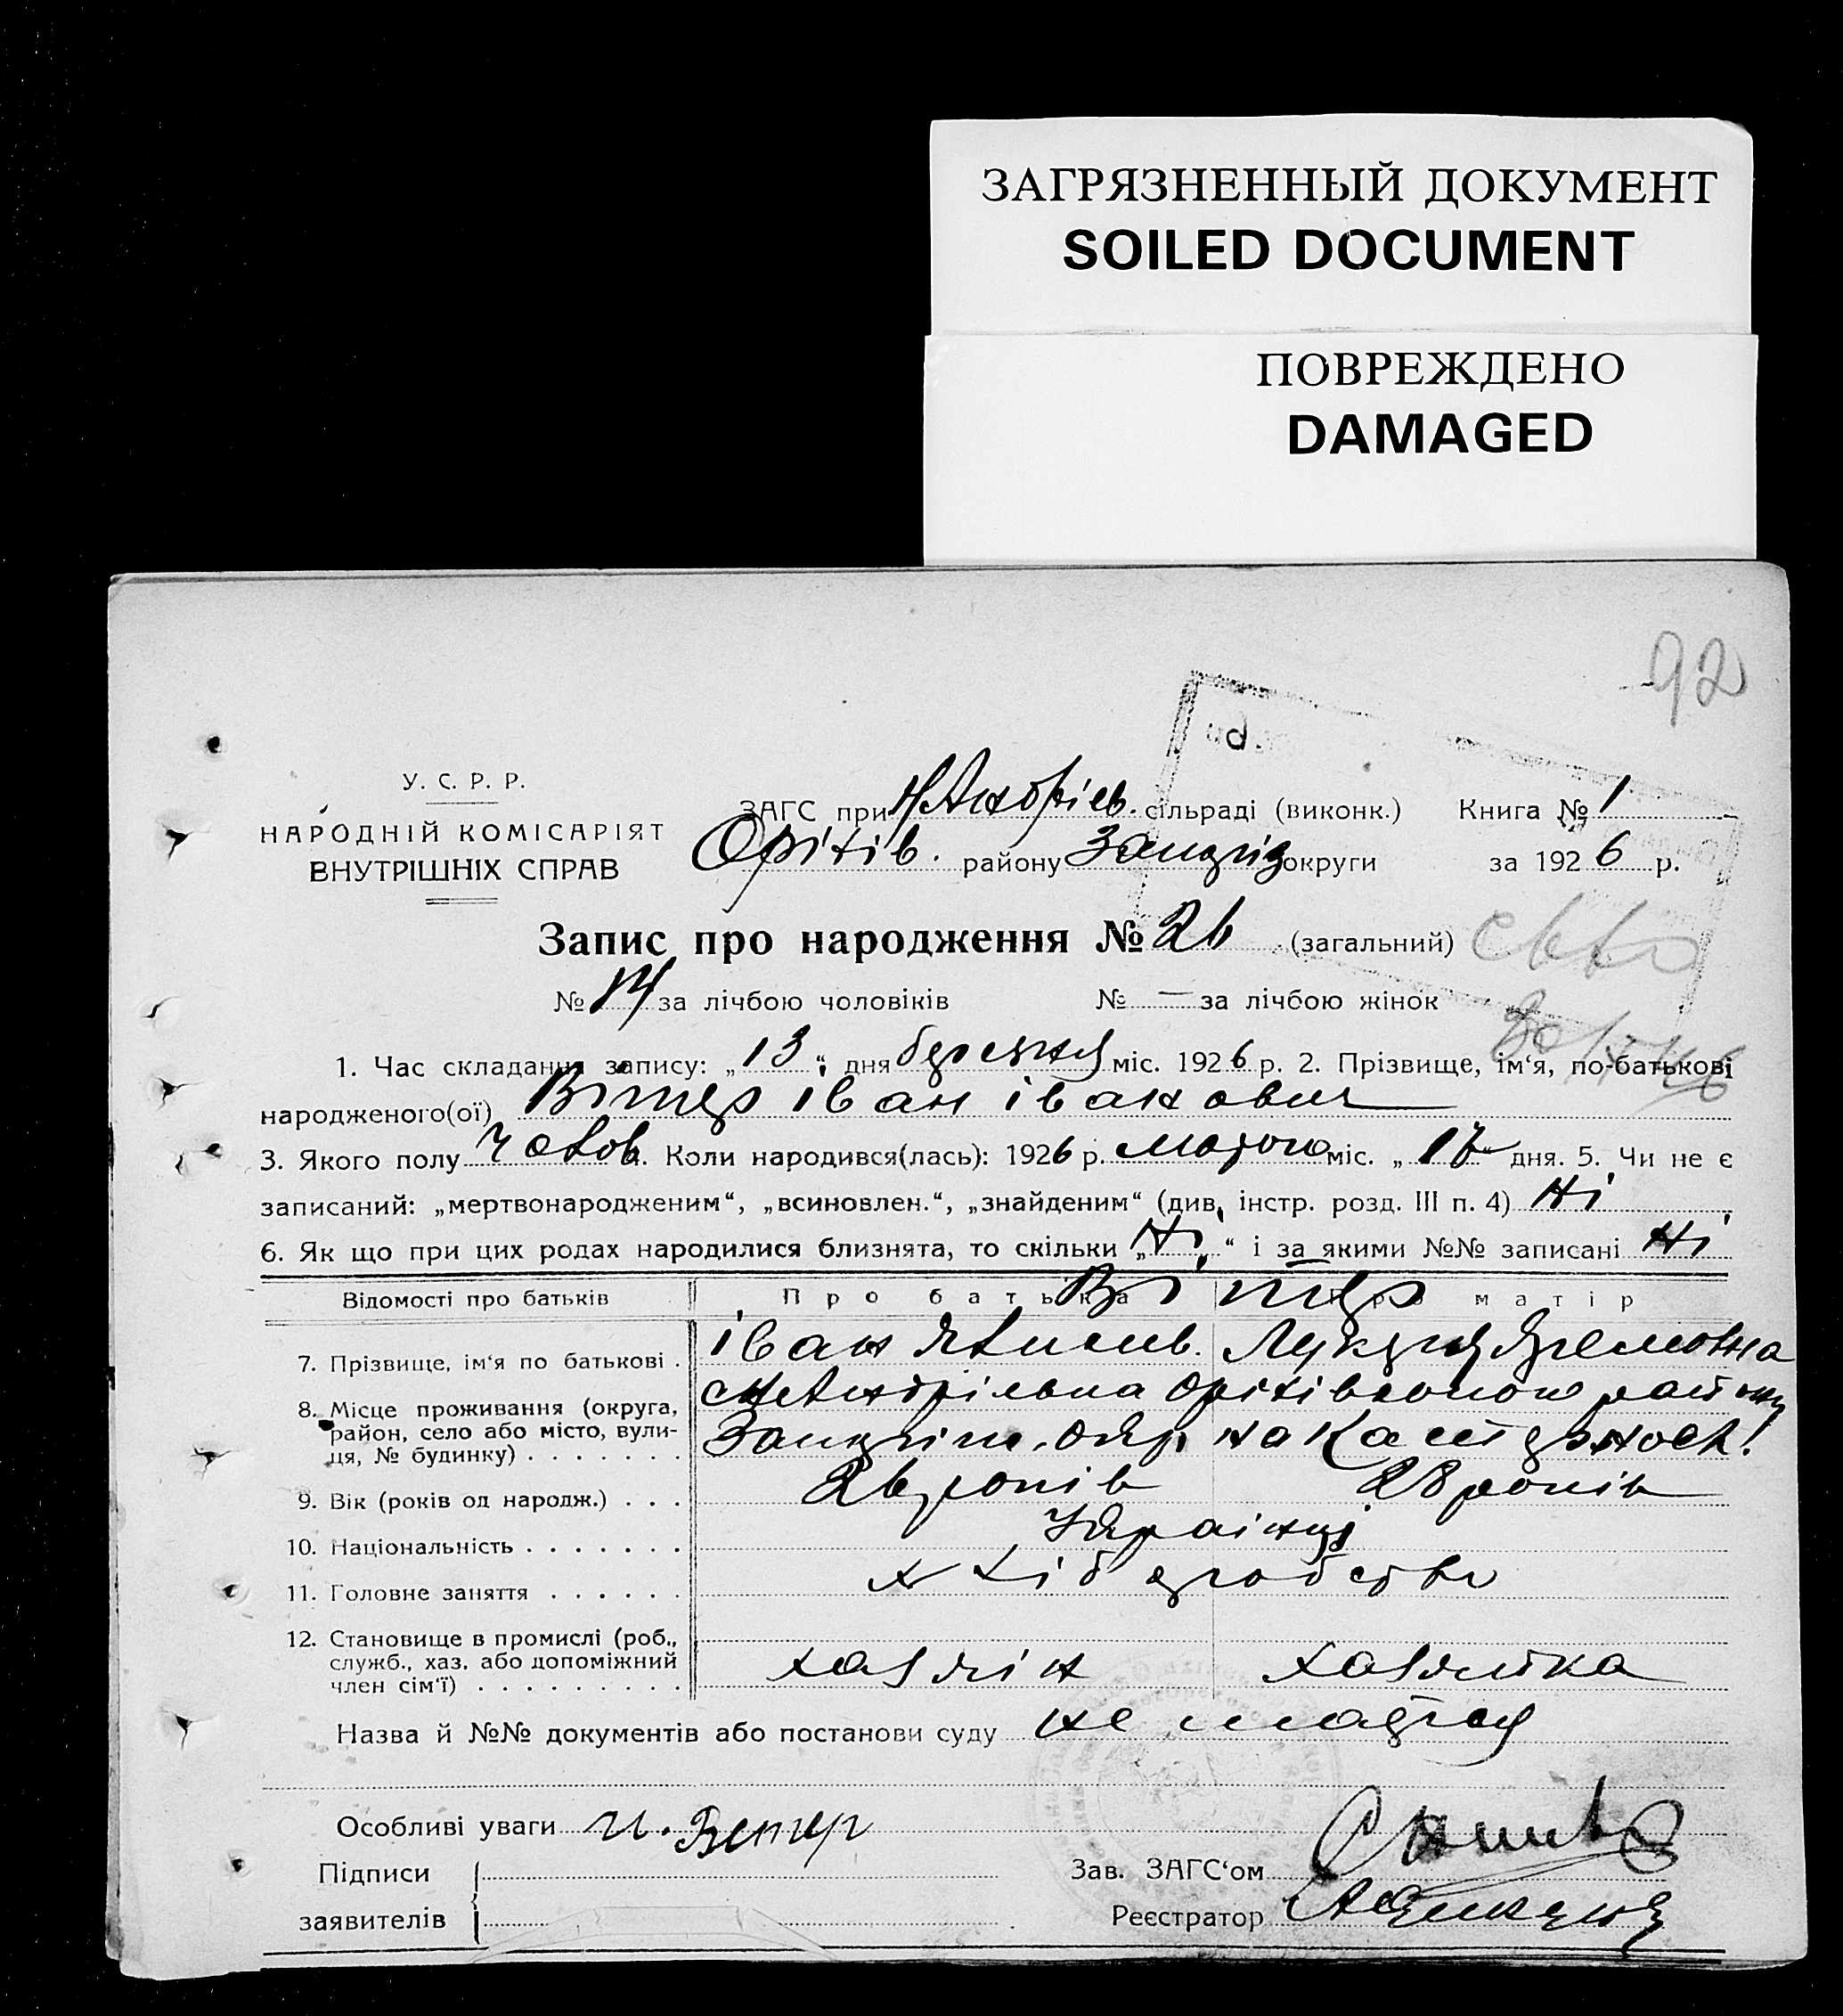 ЗАГРЯЗНЕННЫЙ ДОКУМЕНТ
SOILED DOCUMENT
ПОВРЕЖДЕНО
DAMAGED
92
У. С. Р. Р.
НАРОДНІЙ КОМІСАРІЯТ
ВНУТРІШНІХ СПРАВ
ЗАГС при Н Андріев. сільраді (виконк.) Книга № 1
Оріхів. району Запоріз округи за 1926 р.
Запис про народження № 26 (загальний)
№ 14 за лічбою чоловіків № — за лічбою жінок
1. Час складання запису: „13“ дня березня міс. 1926 р. 2. Прізвище, ім‘я, по-батькові
народженого(ої) Вітер іван іванович
3. Якого полу чолов. Коли народився(лась): 1926 р. лютого міс. „17“ дня. 5. Чи не є
записаний: „мертвонародженим“, „всиновлен.“, „знайденим“ (див. інстр. розд. III п. 4) Ні
6. Як що при цих родах народилися близнята, то скільки „Ні“ і за якими №№ записані Ні
Відомості про батьків Про батька Про матір
Вітер
7. Прізвище, ім‘я по батькові . іван Лукеря
8. Місце проживання (округа, район, село або місто, вулиця, № будинку) . . . . . . . Оріхівського району
9. Вік (років од народж.) . . . 26 років 28 років
10. Національність . . . . . . . Українці
11. Головне заняття . . . . . . хліборобство
12. Становище в промислі (роб., служб., хаз. або допоміжний член сім‘ї) . . . . . . . . . хазяін хазяйка
Назва й №№ документів або постанови суду не
Особливі уваги и. Ветер
Підписи
Зав. ЗАГС‘ом
заявителів
Реєстратор